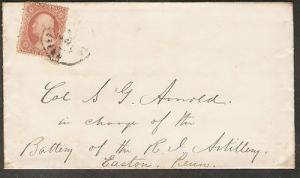 Col S G Arnold
in charge of the
Battery of the R I Artillery.
Easton, Penn.